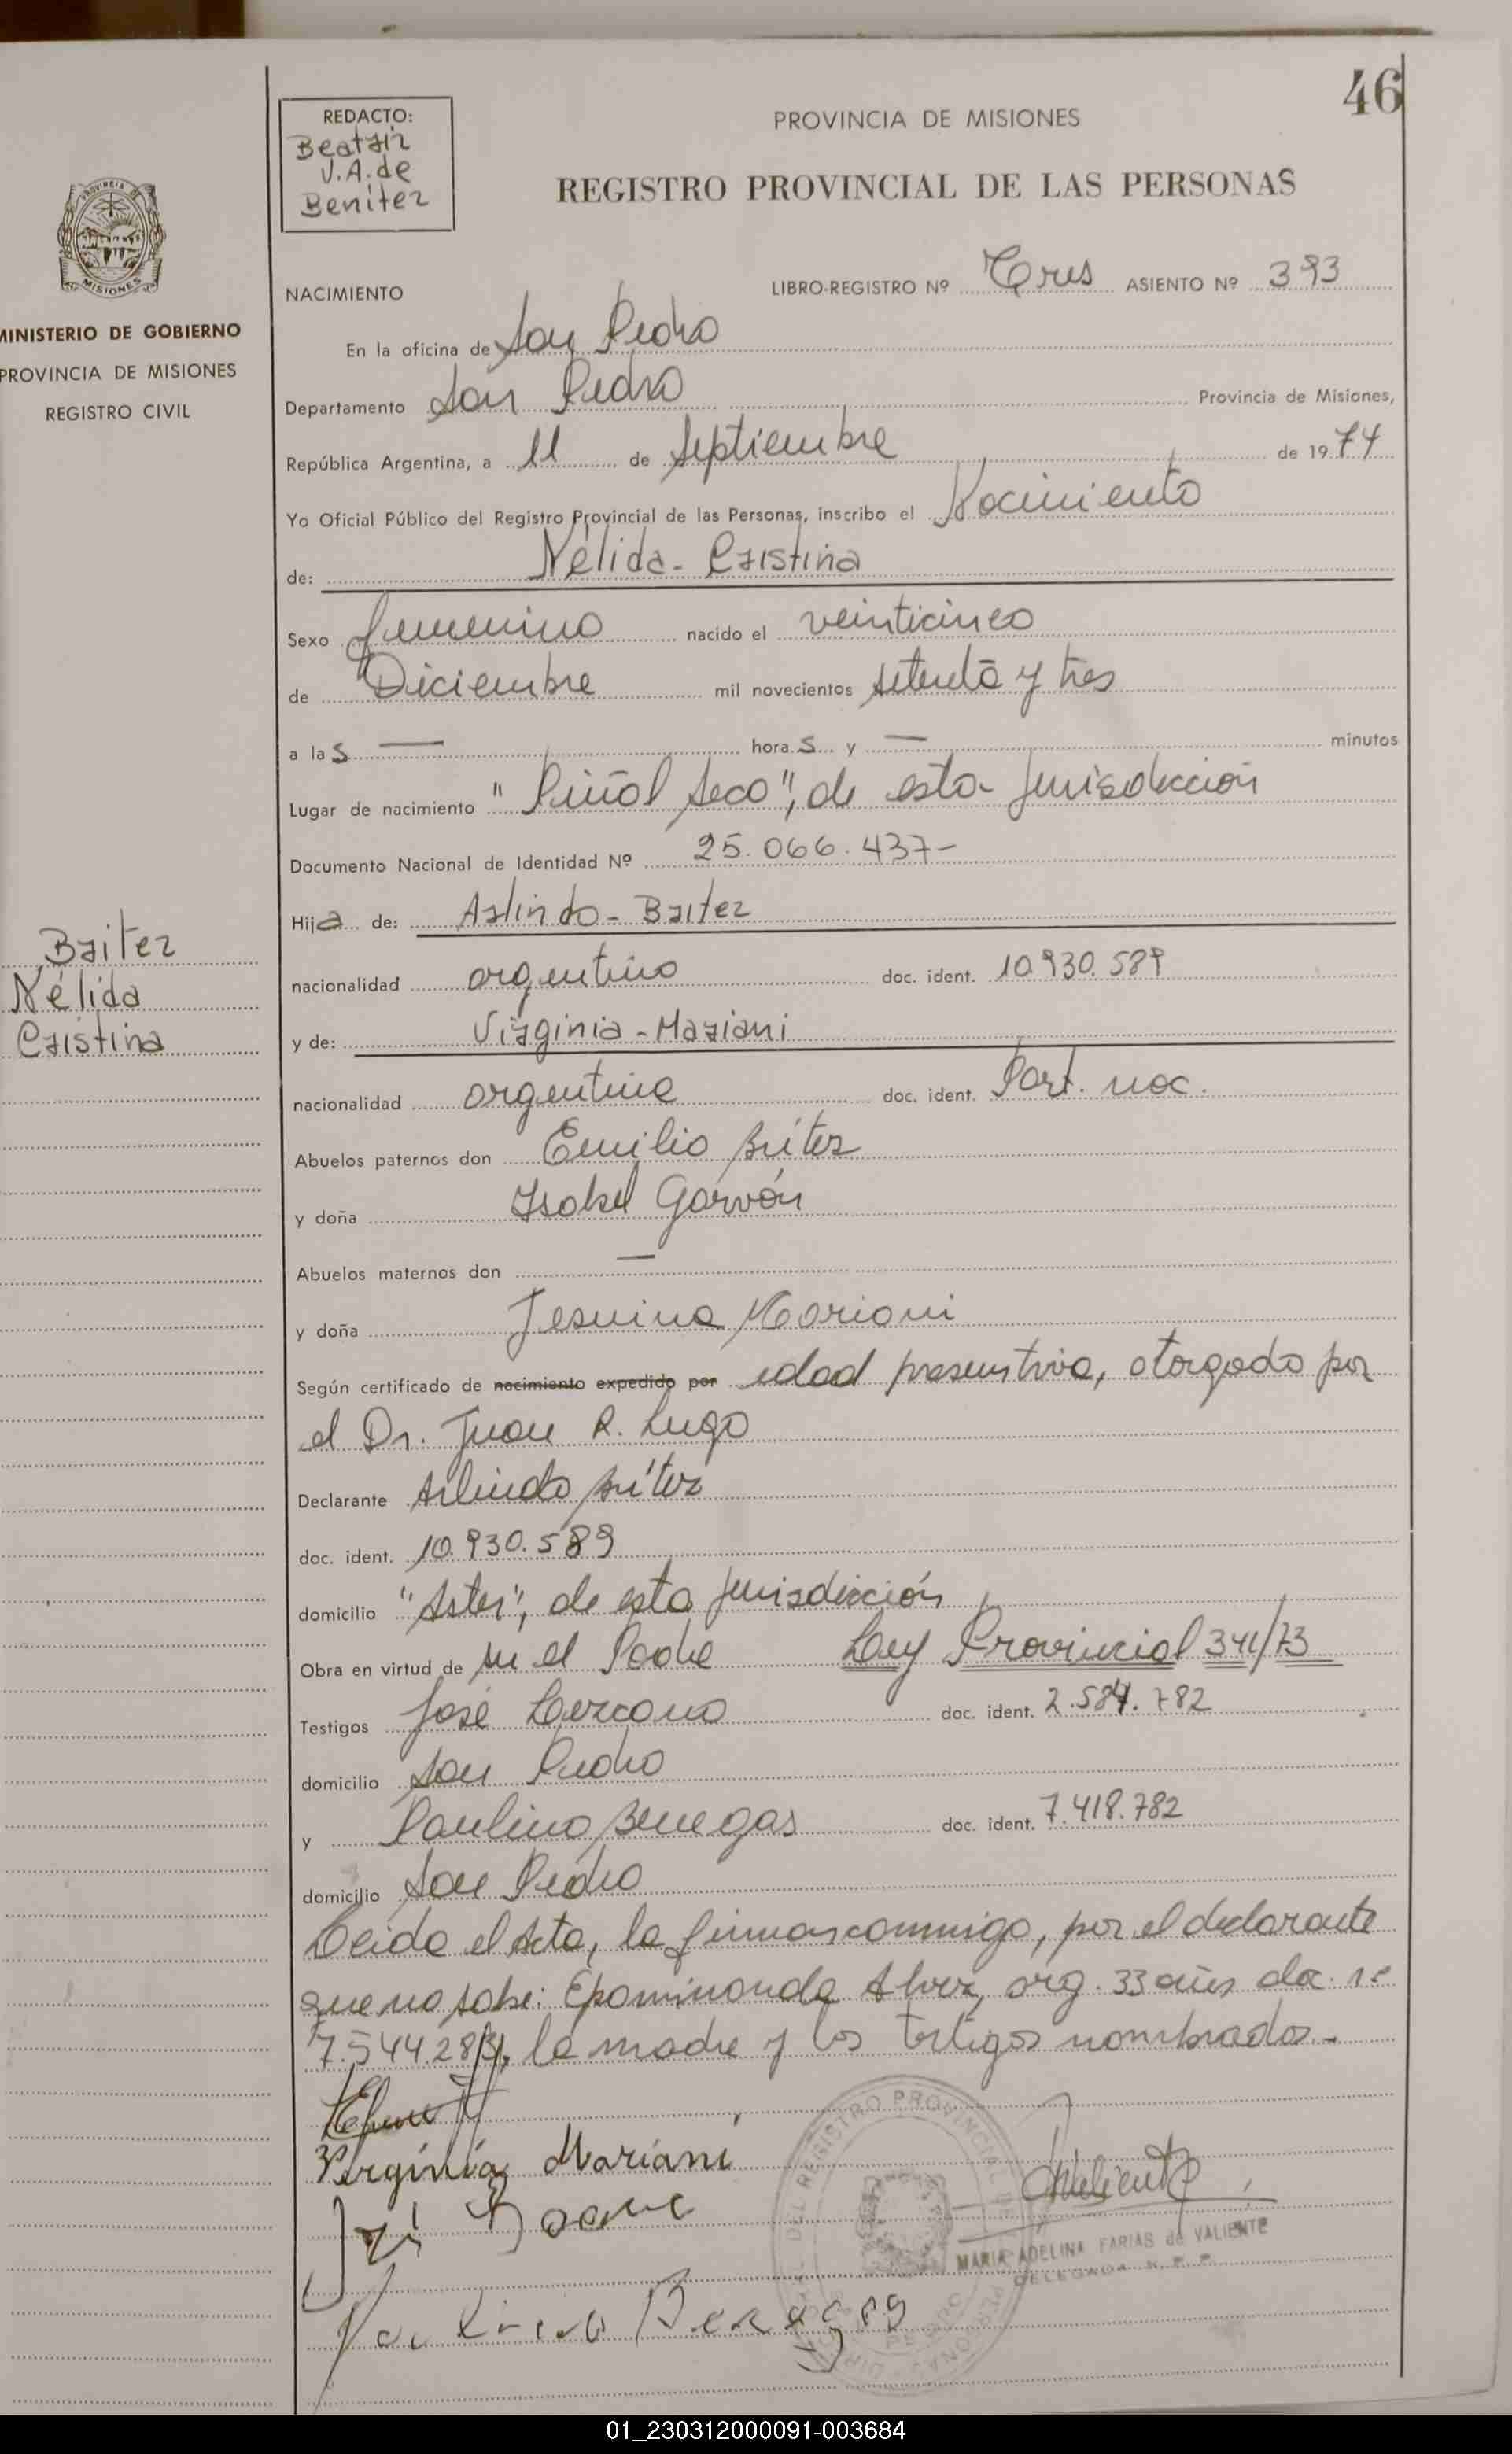 46
REDACTO:
Beatriz
V.A. de
Benítez
PROVINCIA DE MISIONES
REGISTRO PROVINCIAL DE LAS PERSONAS
MISIONES
MINISTERIO DE GOBIERNO
PROVINCIA DE MISIONES
REGISTRO CIVIL
NACIMIENTO
LIBRO-REGISTRO Nº Tres ASIENTO Nº 393
En la oficina de San Pedro
Departamento San Pedro Provincia de Misiones,
República Argentina, a 11 de Septiembre de 1974
Yo Oficial Público del Registro Provincial de las Personas, inscribo el Nacimiento
de: Nélida - Cristina
Sexo femenino nacido el veinticinco
de Diciembre mil novecientos setenta y tres
a las — horas y — minutos
Lugar de nacimiento "Piñal Seco", de esta jurisdicción
Documento Nacional de Identidad Nº 25.066.437-
Hija de: Arlindo - Britez
Britez
Nélida
Cristina
nacionalidad argentino doc. ident. 10.930.589
y de: Virginia - Mariani
nacionalidad argentina doc. ident. Part. nac.
Abuelos paternos don Emilio Britez
y doña Isabel Garvón
Abuelos maternos don —
y doña Jesuina Mariani
Según certificado de nacimiento expedido por edad presuntiva, otorgado por
el Dr. Juan R. Lugo
Declarante Arlindo Britez
doc. ident. 10.930.589
domicilio "Aster", de esta jurisdicción
Obra en virtud de ser el Padre Ley Provincial 341/73
Testigos José Lezcano doc. ident. 2.584.782
domicilio San Pedro
y Paulino Benegas doc. ident. 7.418.782
domicilio San Pedro
Leida el Acta, la firman conmigo, por el declarante
que no sabe: Epominonda Alvez, arg. 33 años doc. nº
7.544.284, la madre y los testigos nombrados.-
Virginia Mariani
José
Paulino Benegas
MARIA ADELINA FARIAS de VALIENTE
DELEGADA R. P. P.
01_230312000091-003684